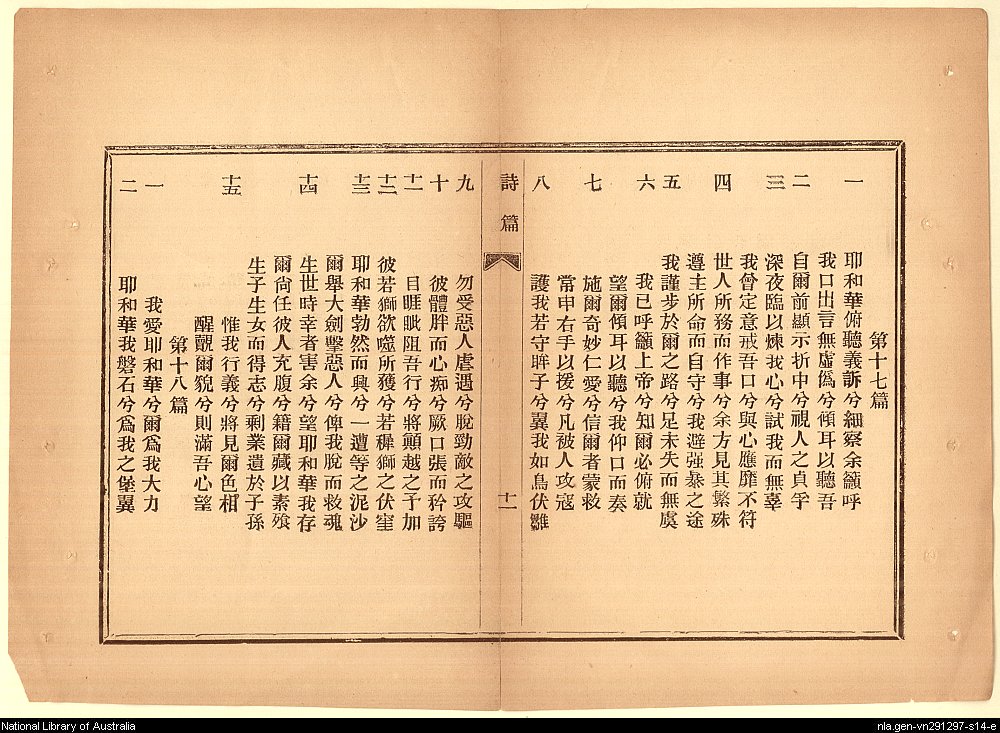 第十七篇
一 耶和華俯聽義訴兮細察余籲呼
我口出言無虛僞兮傾耳以聽吾
二 自爾前顯示折中兮視人之貞孚
三 深夜臨以煉我心兮試我而無辜
我曾定意戒吾口兮與心應靡不符
四 世人所務而作事兮余方見其繁殊
遵主所命而自守兮我避强暴之途
五 我謹步於爾之路兮足未失而無虞
六 我已呼籲上帝兮知爾必俯就
望爾傾耳以聽兮我仰口而奏
七 施爾奇妙仁愛兮信爾者蒙救
常申右手以援兮凡被人攻寇
八 護我若守眸子兮翼我如鳥伏雛
詩篇
十一
九 勿受惡人虐遇兮脫勁敵之攻驅
十 彼體胖而心痴兮厥口張而矜誇
十一 目睚眦阻吾行兮將顛越之予加
十二 彼若獅欲噬所獲兮若穉獅之伏窒
十三 耶和華勃然而興兮一遭等之泥沙
爾舉大劍擊惡人兮俾我脫而救魂
十四 生世時幸者害余兮望耶和華我存
爾尙任彼人充腹兮籍爾藏以素飱
生子生女而得志兮剩業遺於子孫
十五 惟我行義兮將見爾色相
醒覿爾貌兮則滿吾心望
第十八篇
一 我愛耶和華兮爾爲我大力
二 耶和華我磐石兮爲我之堡翼
National Library of Australia
nla.gen-vn291297-s14-e